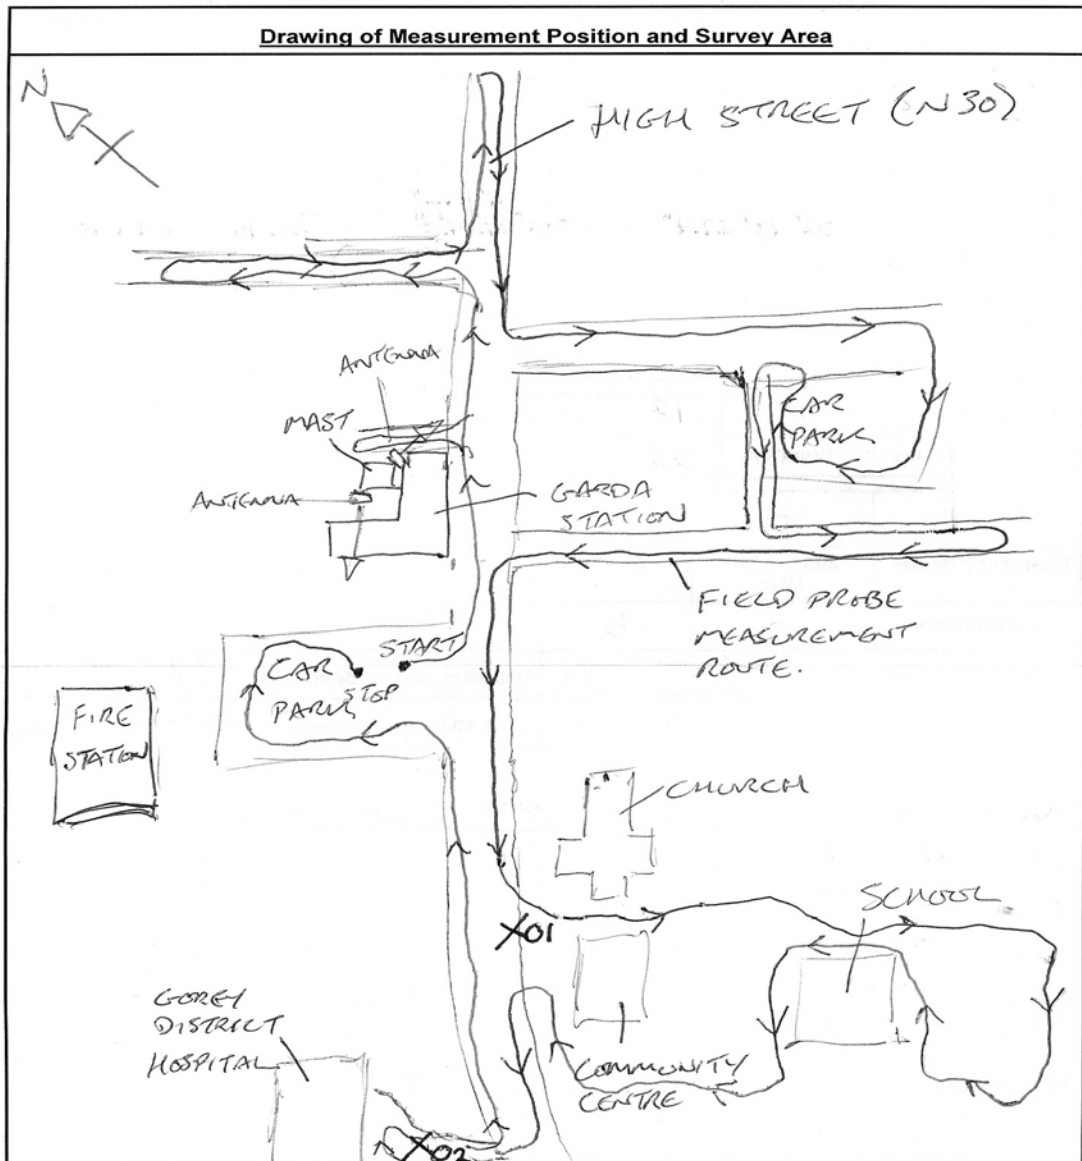 Drawing of Measurement Position and Survey Area
N
HIGH STREET (N30)
ANTENNA
MAST
ANTENNA
GARDA
STATION
CAR
PARK
FIELD PROBE
MEASUREMENT
ROUTE.
START
CAR
PARK
STOP
FIRE
STATION
CHURCH
SCHOOL
X01
GOREY
DISTRICT
HOSPITAL
COMMUNITY
CENTRE
X02